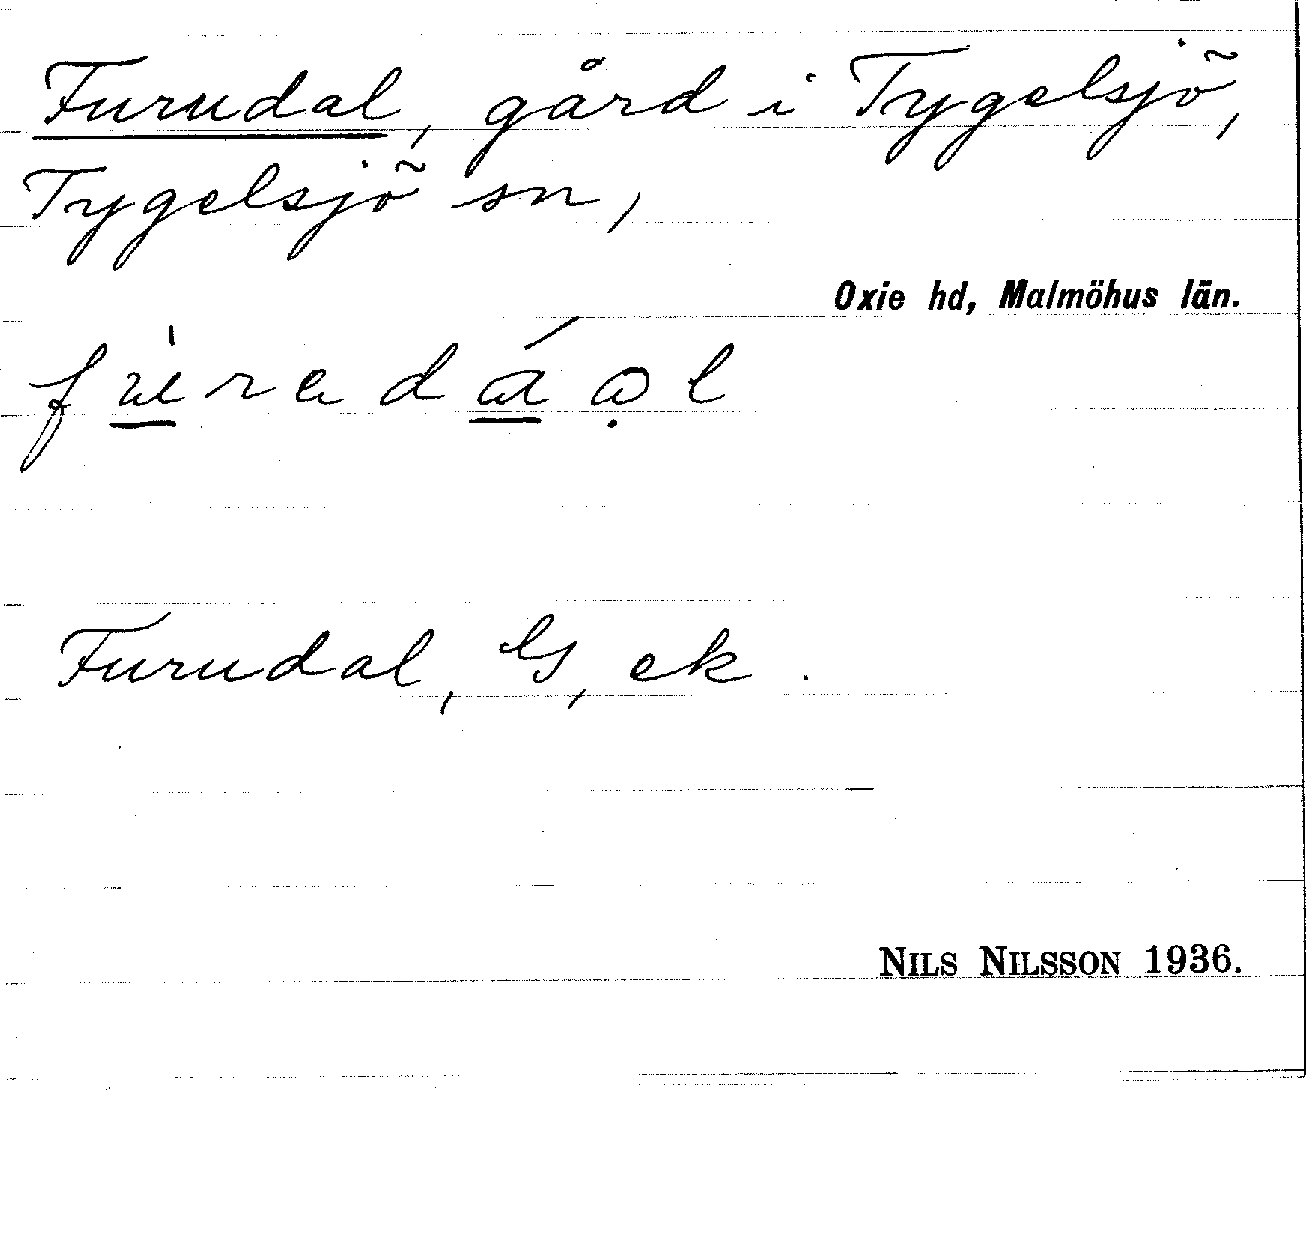 Furudal, gård i Tygelsjö,
Tygelsjö sn,
Oxie hd, Malmöhus län.
Furudal, G, ek.
NILS NILSSON 1936.